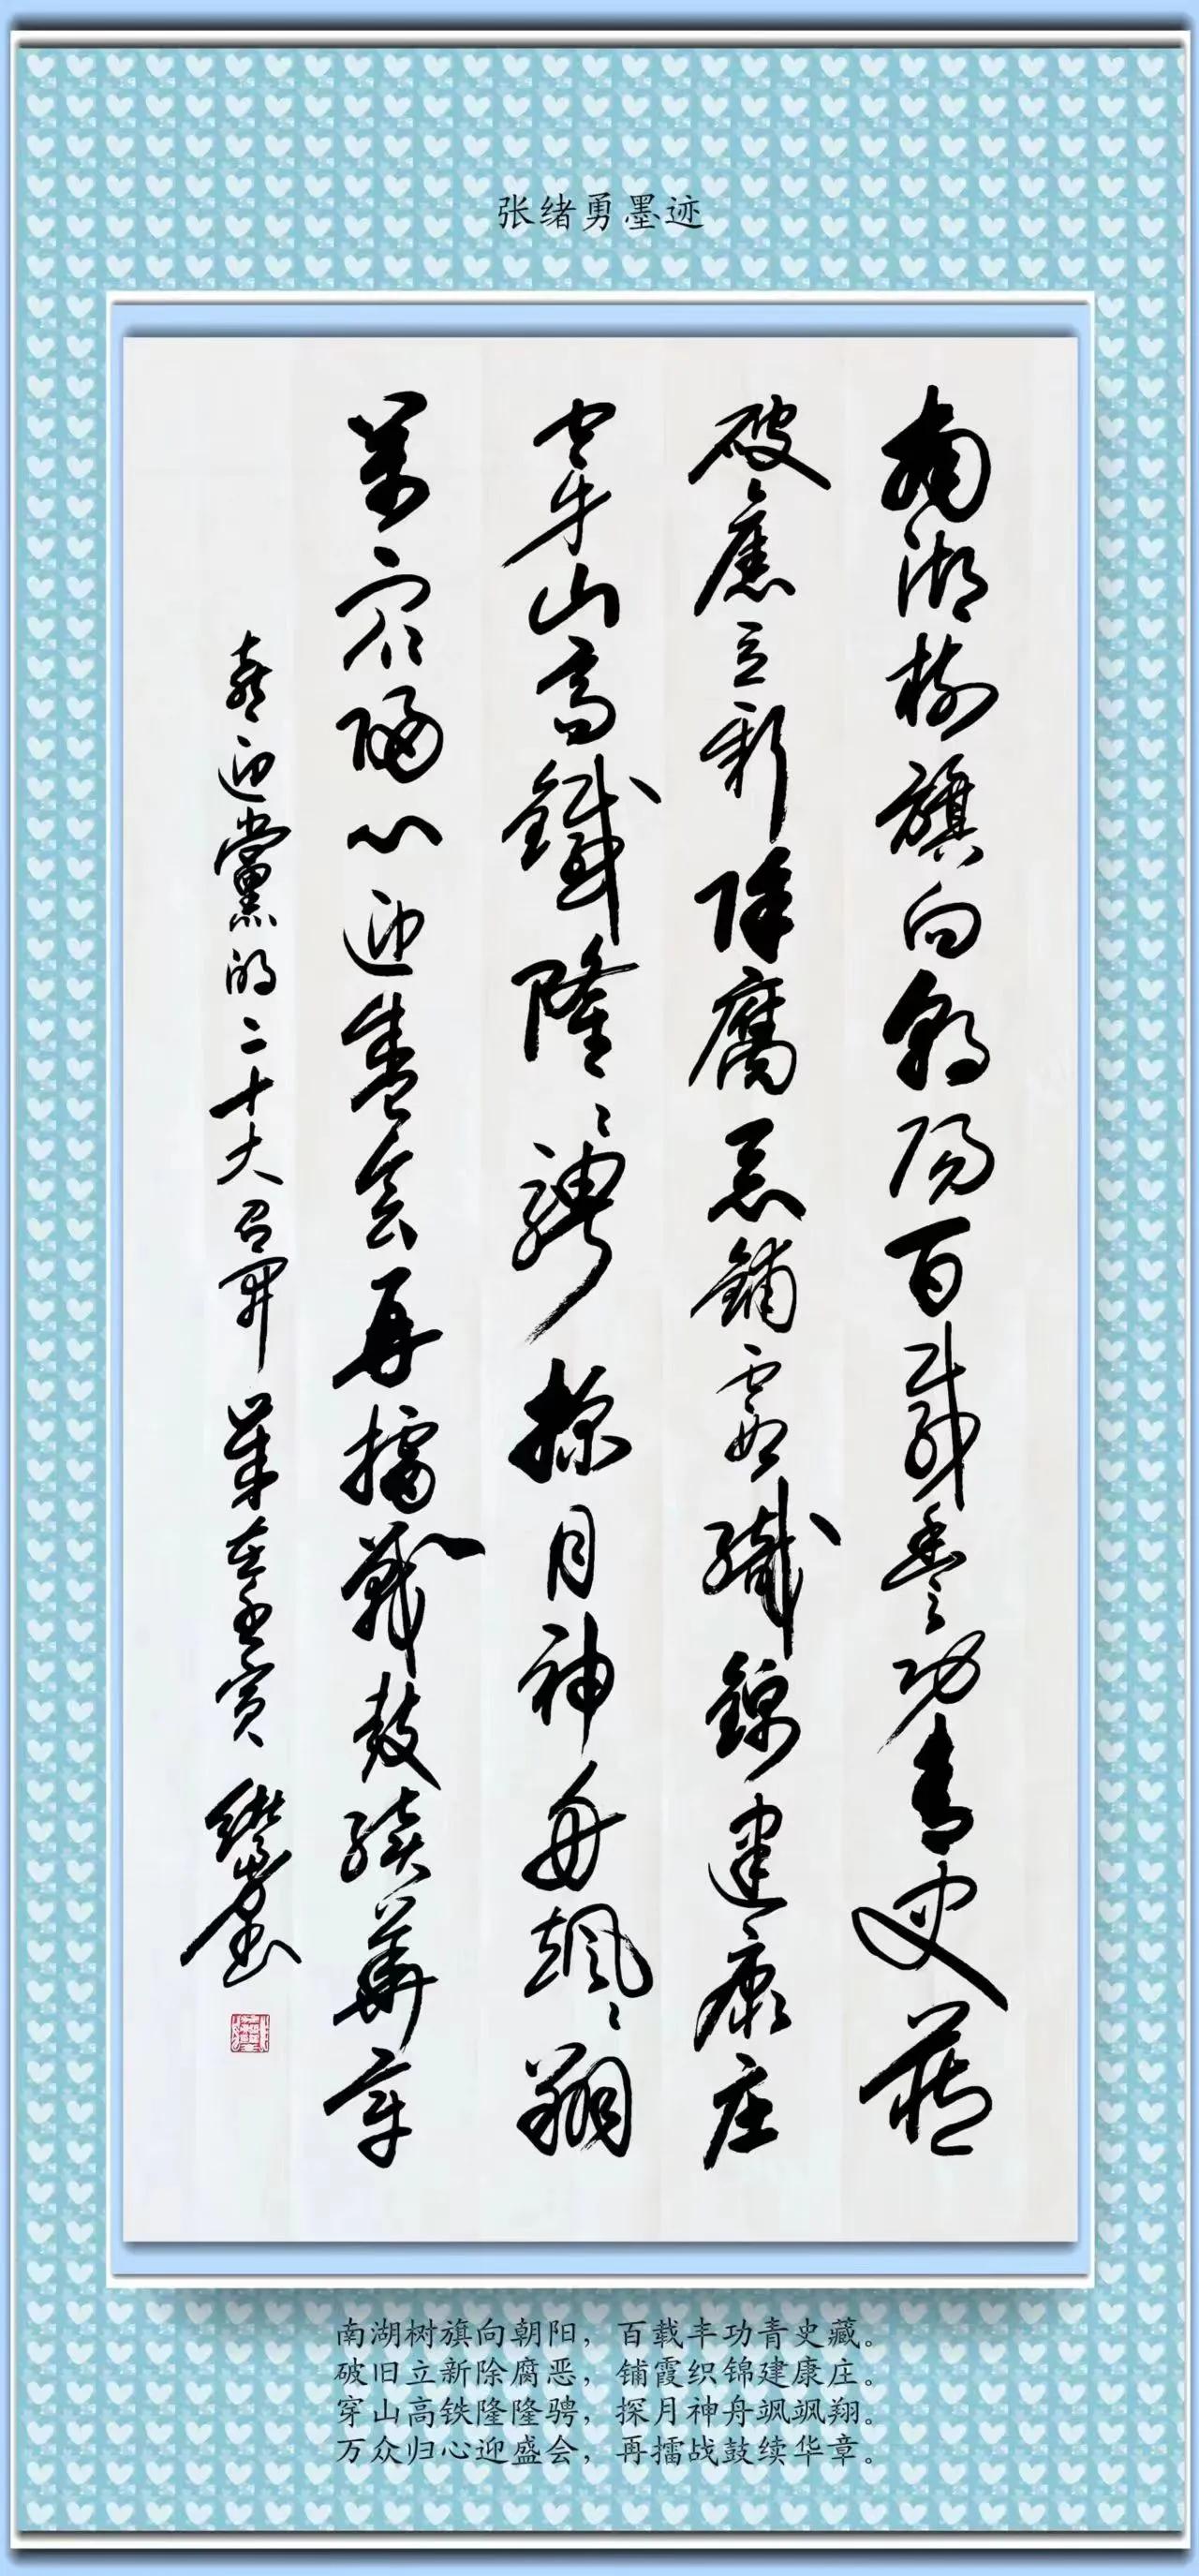 张绪勇墨迹
南湖树旗向朝阳百载丰功青史藏
破旧立新除腐恶铺霞织锦建康庄
穿山高鐵隆隆骋探月神舟飒飒翔
万众归心迎盛会再擂战鼓续华章
喜迎黨的二十大召开
绪勇墨
南湖树旗向朝阳，百载丰功青史藏。
破旧立新除腐恶，铺霞织锦建康庄。
穿山高铁隆隆骋，探月神舟飒飒翔。
万众归心迎盛会，再擂战鼓续华章。